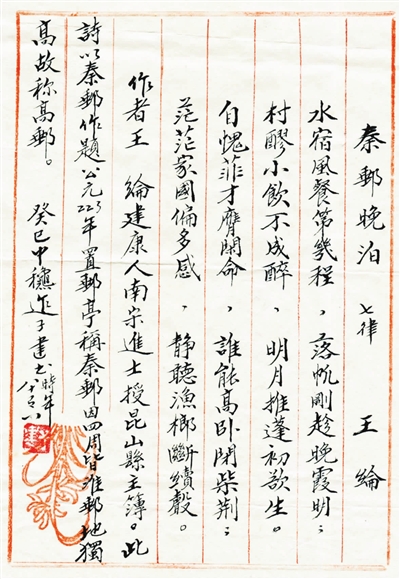 秦郵晚泊 七律 王綸
水宿風餐第幾程，落帆剛趁晚霞明；
村醪小飲不成醉、明月推蓬初欲生。
自愧菲才膺命，誰能高卧閉柴荆；
茫茫家國偏多感，静聽漁榔斷續聲。
作者王 綸建康人南宋進士授昆山縣主簿。此
詩以秦郵作題公元223年置郵亭稱秦郵因四周皆淮郵地獨
高故称高郵。 癸巳中穐 子書 時年